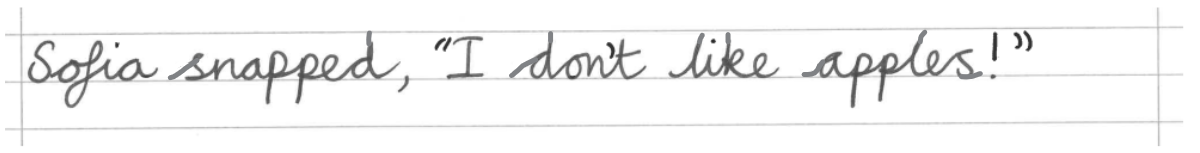 Sofia snapped, "I don't like apples!"